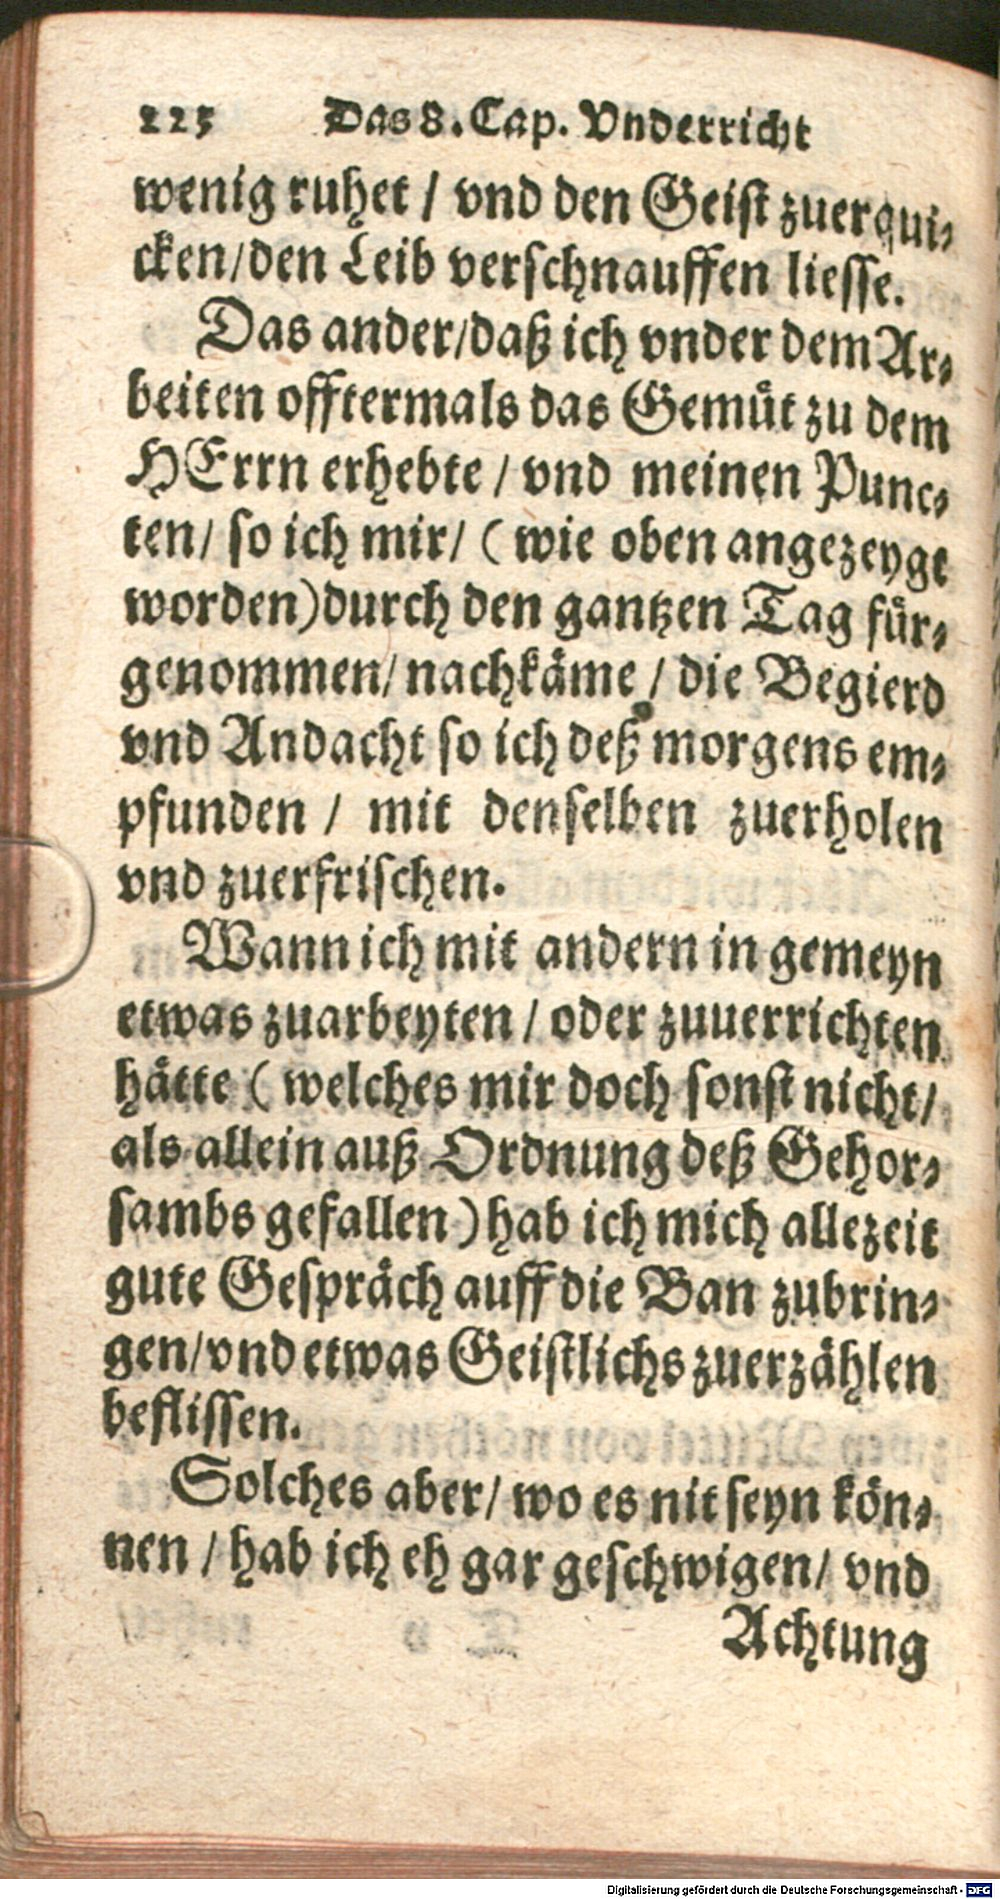 223 Das 8. Cap. Vnderricht
wenig ruhet / vnd den Geist zuerqui-
cken/den Leib verschnauffen liesse.
Das ander/daß ich vnder dem Ar-
beiten offtermals das Gemüt zu dem
HErrn erhebte / vnd meinen Punc-
ten/ so ich mir/ ( wie oben angezeygt
worden)durch den gantzen Tag für-
genommen/ nachkäme / die Begierd
vnd Andacht so ich deß morgens em-
pfunden / mit denselben zuerholen
vnd zuerfrischen.
Wann ich mit andern in gemeyn
etwas zuarbeyten / oder zuuerrichten
hätte ( welches mir doch sonst nicht/
als allein auß Ordnung deß Gehor-
sambs gefallen ) hab ich mich allezeit
gute Gespräch auff die Ban zubrin-
gen/vnd etwas Geistlichs zuerzählen
beflissen.
Solches aber/ wo es nit seyn kön-
nen / hab ich eh gar geschwigen/ vnd
Achtung
Digitalisierung gefördert durch die Deutsche Forschungsgemeinschaft - DFG